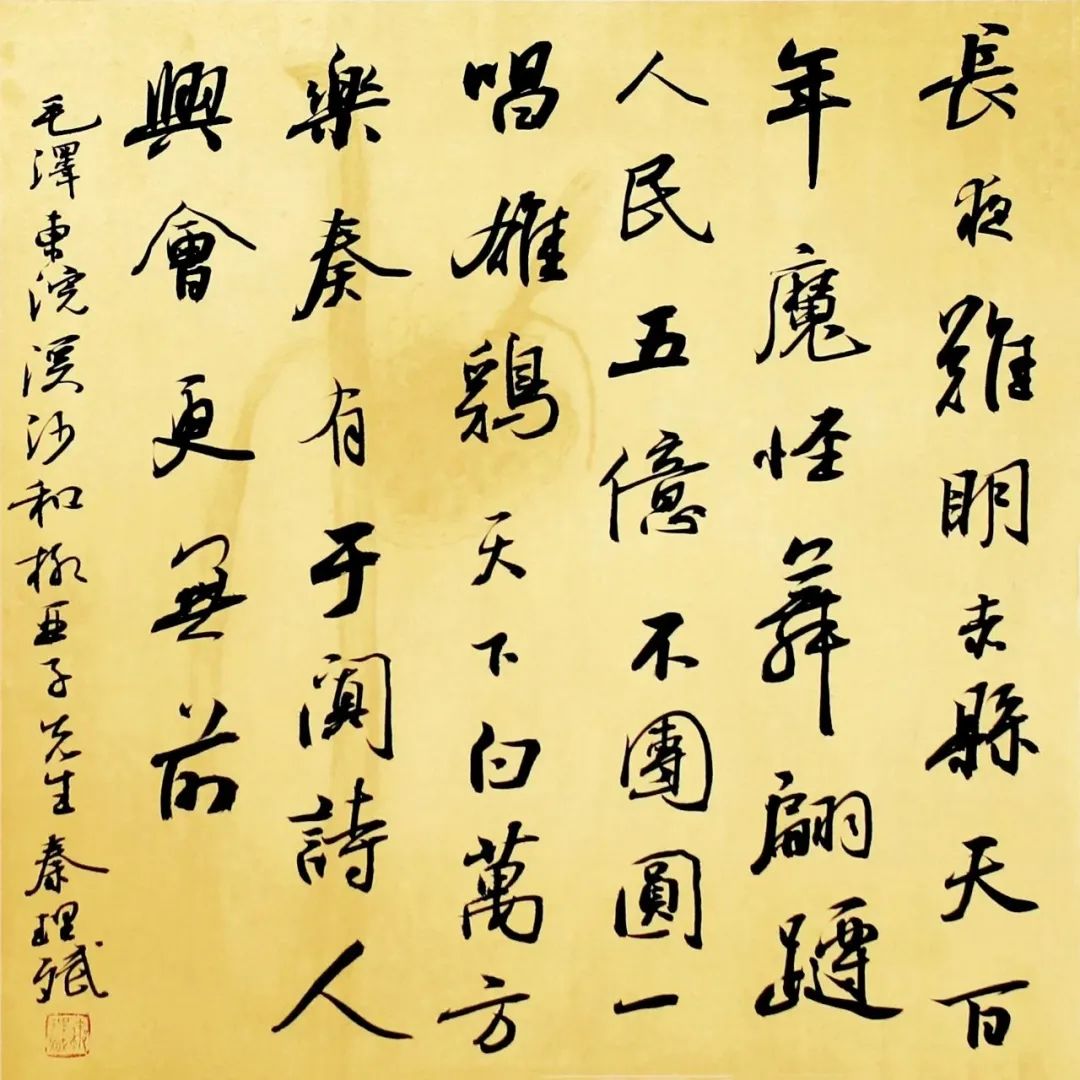 長夜難明赤縣天百
年魔怪舞翩躚
人民五億不團圓一
唱雄鷄天下白萬方
樂奏有于闐詩人
興會更無前
毛澤東浣溪沙和柳亞子先生 秦理斌